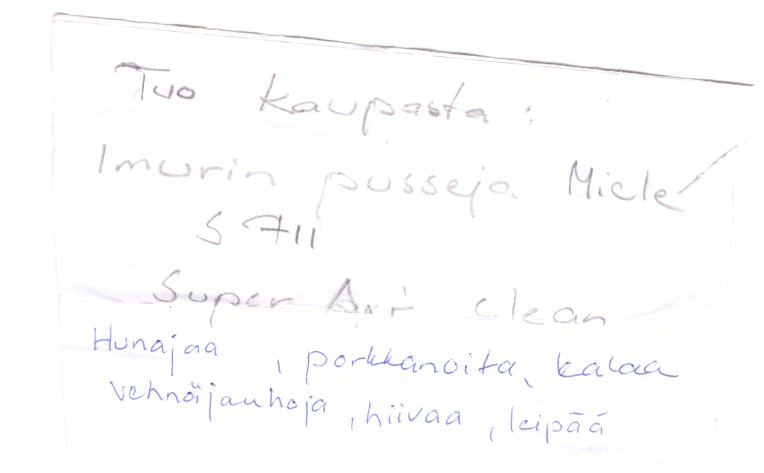 Tuo kaupasta :
Imurin pusseja Miele
S 711
Super Air clean
Hunajaa , porkkanoita, kalaa
vehnäjauhoja, hiivaa, leipää